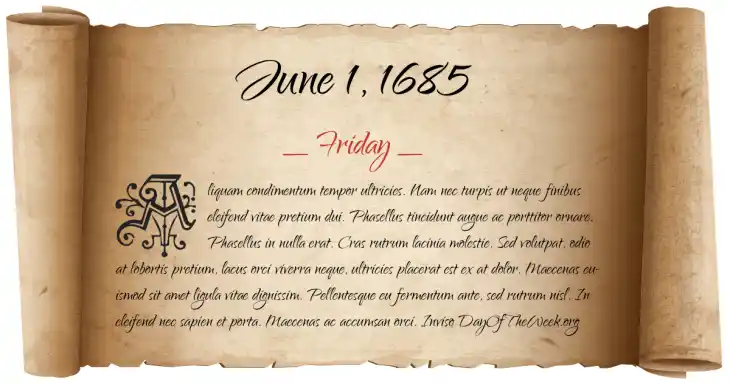 June 1, 1685
_ Friday _
Aliquam condimentum tempor ultricies. Nam nec turpis ut neque finibus
eleifend vitae pretium dui. Phasellus tincidunt augue ac porttitor ornare.
Phasellus in nulla erat. Cras rutrum lacinia molestie. Sed volutpat, odio
at lobortis pretium, lacus orci viverra neque, ultricies placerat est ex at dolor. Maecenas eu-
ismod sit amet ligula vitae dignissim. Pellentesque eu fermentum ante, sed rutrum nisl. In
eleifend nec sapien et porta. Maecenas ac accumsan orci. Inviso DayOfTheWeek.org